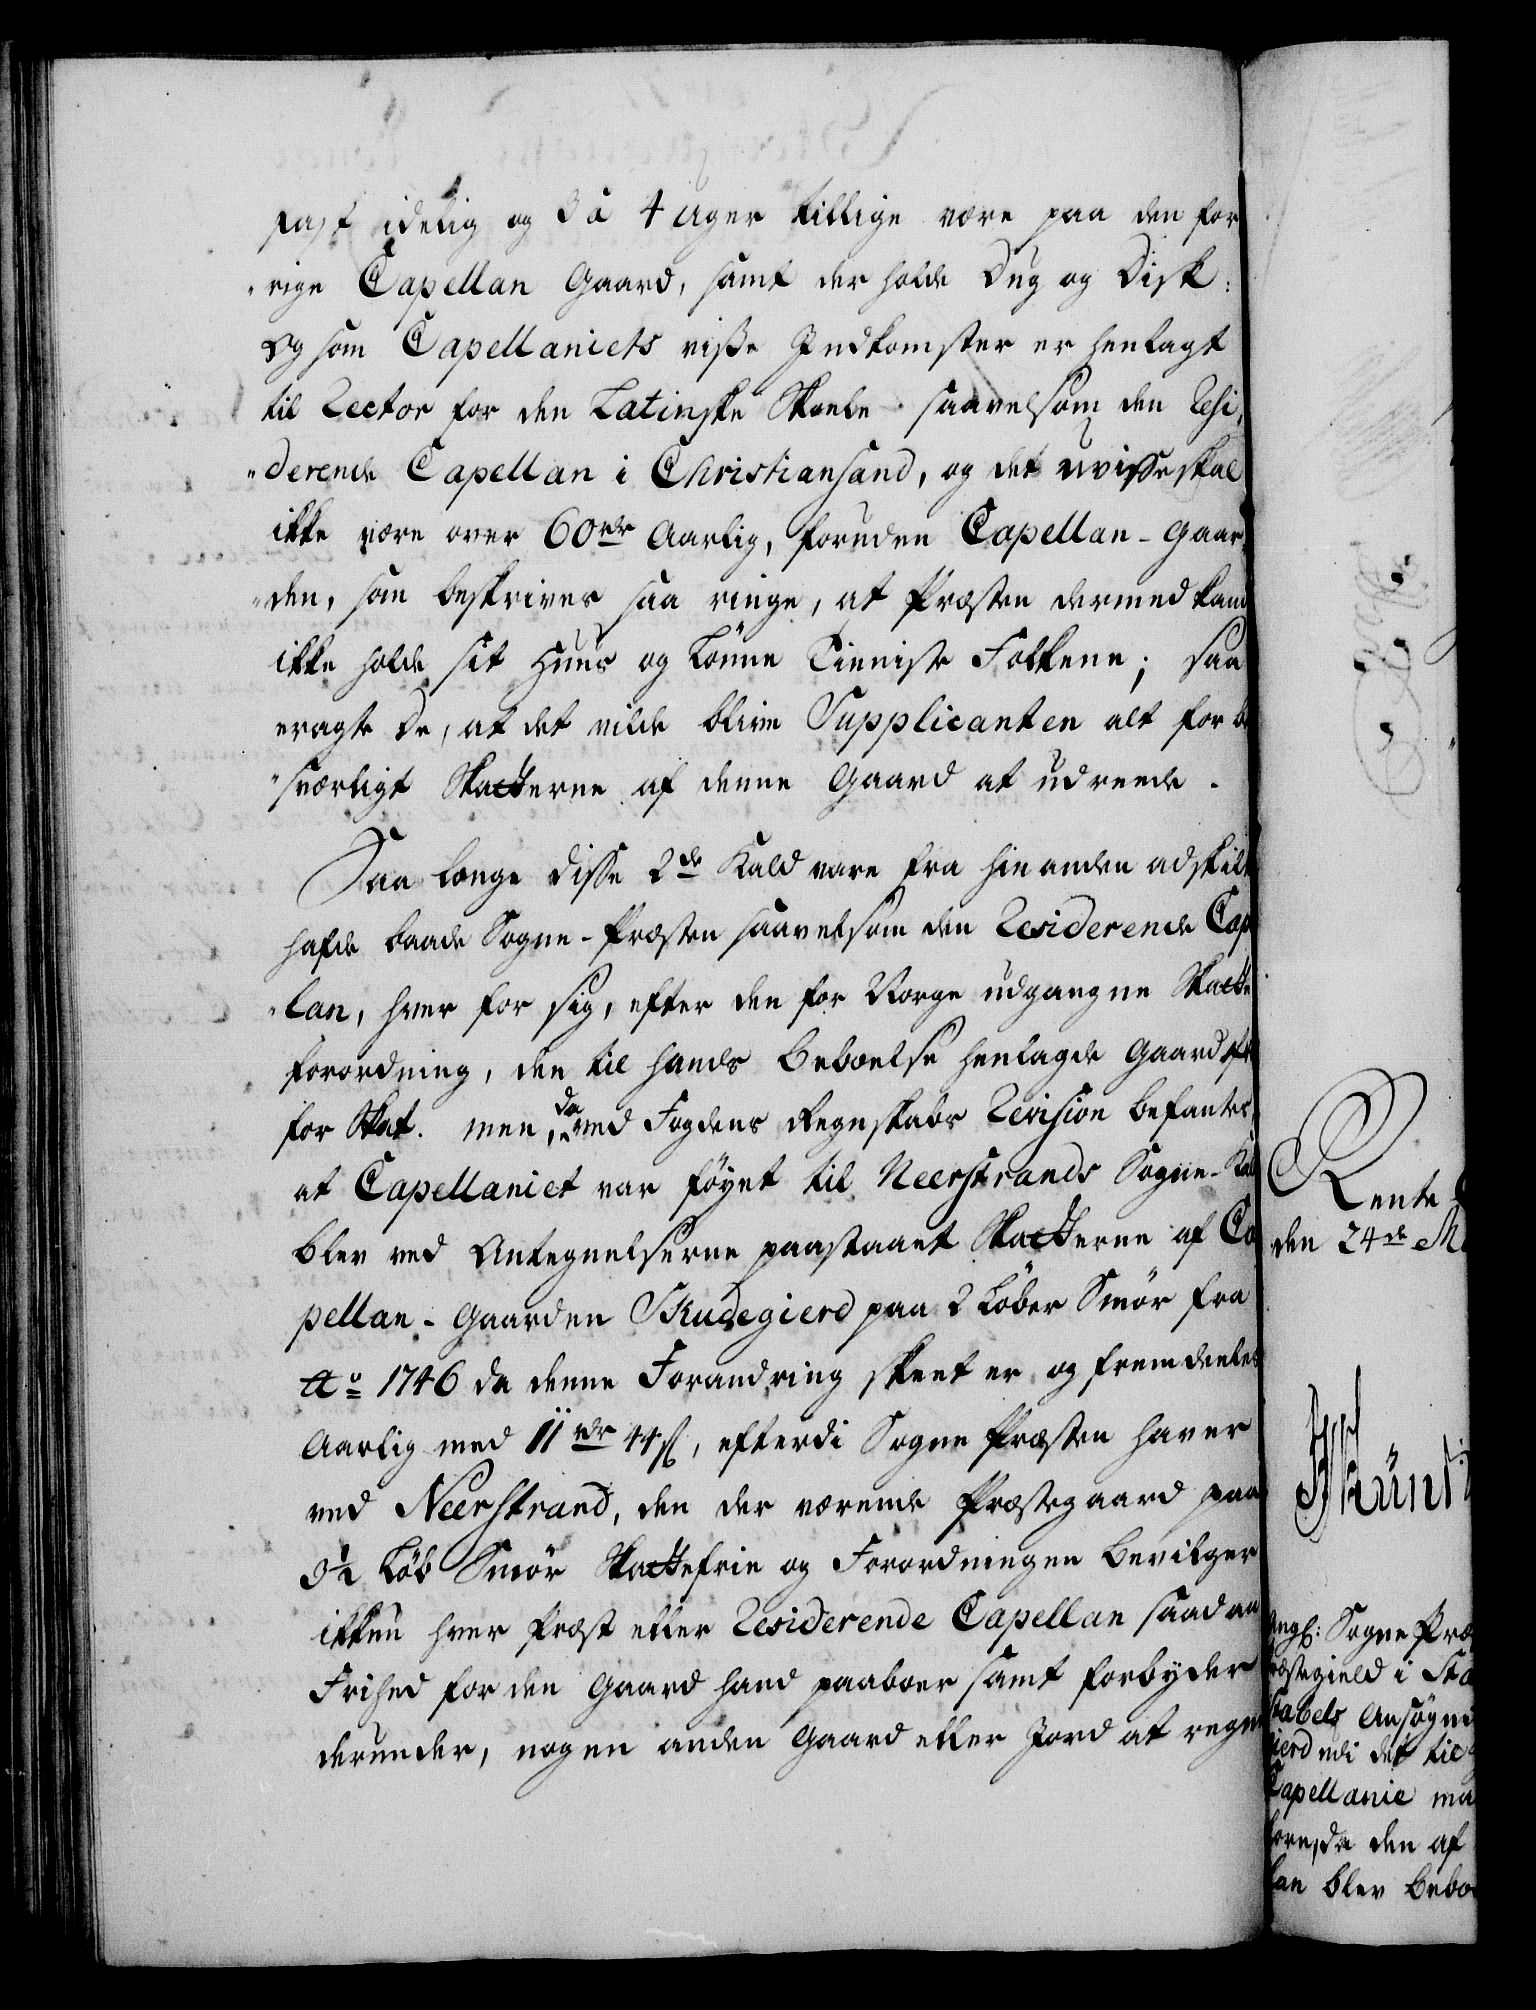 fast idelig og 3 à 4 Uger tillige være paa den for
„rige Capellan Gaard, samt der holde Dug og Disk:
Og som Capellaniets visse Indkomster er henlagt
til Rector for den Latinske Skoele saavelsom den Resi„
„derende Capellan i Christiansand, og det uvisse skal
ikke være over 60 rdr Aarlig, foruden Capellan-Gaar
„den, som beskrives saa ringe, at Præsten dermed kand
ikke holde sit Huus og Lønne Tieniste Folkene; saa
eragte De, at det vilde blive Supplicanten alt for be
„sværligt Skatterne af denne Gaard at udreede.
Saa længe disse 2de Kald vare fra hinanden adskilt
hafde baade Sogne-Præsten saavelsom den Residerende Cap
„lan, hver for sig, efter den for Norge udgangne Skatte
forordning, den til hands Beboelse henlagde Gaard
for Skat. men, da ved Fogdens Regnskabs Revision befantes,
at Capellaniet var føyet til Neerstrands Sogne-Kal
blev ved Antegnelserne paastaaet Skatterne af Ca
pellan-Gaarden Skudegierd paa 2 Løber Smør fra
Ao 1746 da denne Forandring skeet er og fremdeeles
Aarlig med 11 rdr 44 s, efterdi Sogne Præsten haver
ved Neerstrand, den der værende Præstegaard paa
3½ Løb Smør Skattefrie og Forordningen bevilger
ikkun hver Præst eller Residerende Capellan saadan
Frihed for den Gaard hand paaboer samt forbyder
derunder, nogen anden Gaard eller Jord at regne
Rente
den 24de M
Angl: Sogne Præ
æstegield i Sta
abels Ansøgn
ierd udi det til
Capellanie ma
fore, da den af
lan blev Bebo